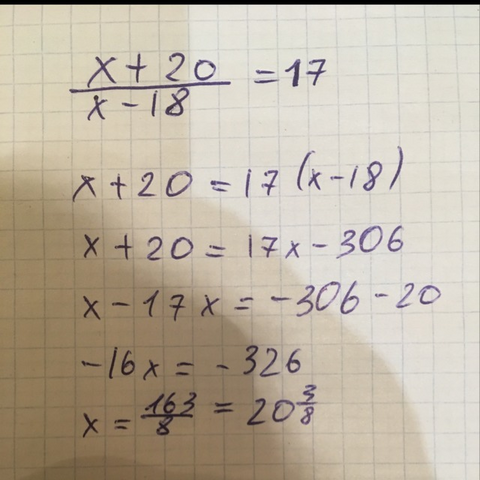 x + 20 / x - 18 = 17
x + 20 = 17 (x - 18)
x + 20 = 17x - 306
x - 17x = -306 - 20
-16x = -326
x = 163/8 = 20 3/8